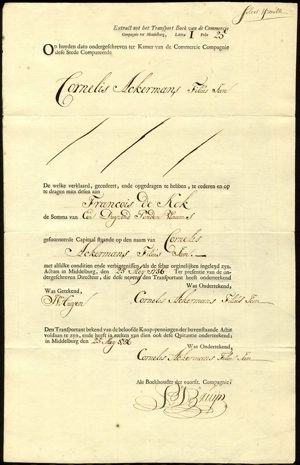 Extract uyt het Transport Boek van de Commercie
Compagnie tot Middelburg, Lettra I Folio 25
Op huyden dato ondergeschreven ter Kamer van de Commercie Compagnie
dese Stede Compareerde
Cornelis Ackermans Filius Jan
De welke verklaard, gecedeert, ende opgedragen te hebben, te cederen en op
te dragen mits desen aan
Francois de Kok
de Somma van Een Duysend Ponden Vlaams
gefourneerde Capitaal staande op den naam van Cornelis
Ackermans Filius Jan
met alsulke conditien ende verbintenissen, als de selve orgineelijken ingeleyd zyn.
Actum in Middelburg, den 25 May 1736 Ter presentie van de ondergeschreven Directeur, die desen nevens den Transportant heeft ondertekend.
Was Getekend, Was Ondertekend,
Cornelis Ackermans Filius Jan
Den Transportant bekend van de beloofde Koop-penningen der bovenstaande Actie
voldaan te zyn, ende heeft in teeken van dien ook dese Quitantie ondertekend;
in Middelburg den 25 May 1736
Was Ondertekend,
Cornelis Ackermans Filius Jan
Als Boekhouder der voorsz. Compagnie